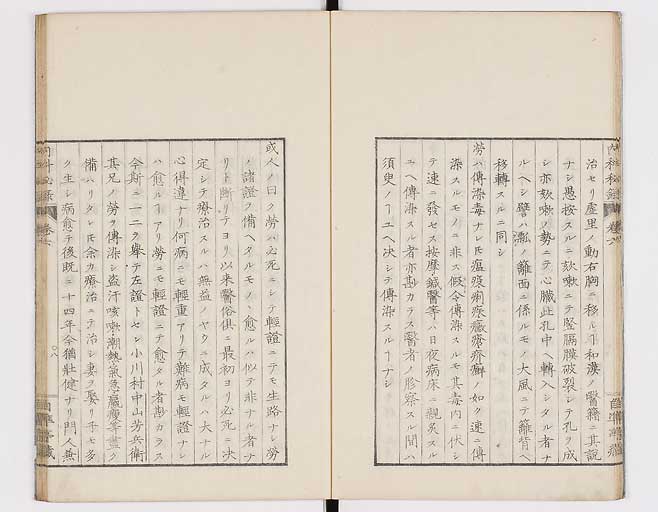 内科秘録 巻六
治セリ虚里ノ動右胸ニ移ルヿ和漢ノ醫籍ニ其説
ナシ愚按スルニ欬嗽ニテ竪膈膜破裂シテ孔ヲ成
シ亦欬嗽ノ勢ニテ心臓此孔中ヘ轉入シタル者ナ
ルヘシ譬ハ瓢ノ籬面ニ係ルモノ大風ニテ籬背ヘ
移轉スルニ同シ
勞ハ傳染毒ナレ𪜈瘟疫痢疾癥瘡疥癬ノ如ク速ニ傳
染スルモノニ非ス假令傳染スルモ其毒内ニ伏シ
テ速ニ發セス按摩鍼醫等ハ日夜病床ニ親炙スル
ユヘ傳染スル者亦尠カラス醫者ノ胗察スル間ハ
須臾ノヿユヘ决シテ傳染スルヿナシ
自準亭藏
或人ノ曰ク勞ハ必死ニシテ輕證ニテモ生路ナシ勞
ノ諸證ヲ備ヘタルモノヽ愈ルハ似テ非ナル者ナ
リト斷リテヨリ以来醫俗俱ニ最初ヨリ必死ニ决
定シテ療治スルハ無益ノヤウニ成タルハ大ナル
心得違ナリ何病ニモ輕重アリテ難病モ輕證ナレ
ハ愈ルヿアリ勞ニモ輕證ニテ愈タル者尠カラス
今斯ニ一二ヲ擧テ左證トセン小川村中山芳兵衛
其兄ノ勞ヲ傳染シ盗汗咳嗽潮熱氣急羸瘦等盡ク
備ハリタレ𪜈余カ療治ニテ治シ妻ヲ娶リ子モ多
ク生シ病愈テ後既ニ十四年今猶壯健ナリ門人無
内科秘録 巻六
自準亭藏